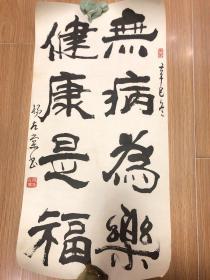 無病為樂
健康是福
辛巳冬